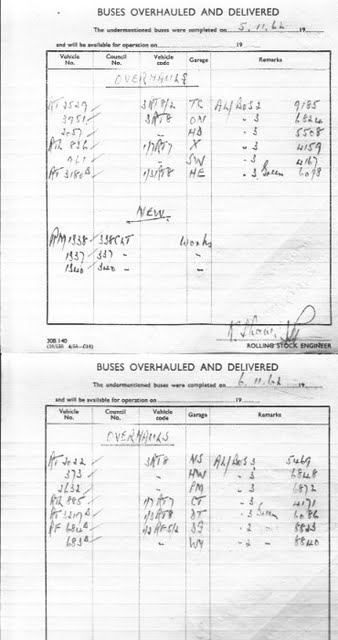 BUSES OVERHAULED AND DELIVERED
The undermentioned buses were completed on 5.11.62 19
and will be available for operation on 19
Vehicle No. Council No. Vehicle code Garage Remarks
OVERHAULS
RT 2529 3RT8/2 TC AL/BOS 3 9185
3951 3RT8 ON - 3
2057 " HD - 3 5508
RTL 836 1/7RT7 X - 3 4159
961 " SW - 3 4167
RT 3180 1/3RT8 HE - 3 Green 6098
NEW
RM 1338 338CLT Works
1337 337 - "
1340 340 - "
ROLLING STOCK ENGINEER
BUSES OVERHAULED AND DELIVERED
The undermentioned buses were completed on 6.11.62 19
and will be available for operation on 19
Vehicle No. Council No. Vehicle code Garage Remarks
OVERHAULS
RT 2022 3RT8 NS AL/BOS 3 5469
373 " HW - 3 6848
2632 " PM - 3 6872
RTL 885 1/7RT7 CT - 3 4171
RT 1/3RT8 DT - 3 Green 6086
RF 684 1/2RF5/2 DG - 2 - 8833
683 " WY - 2 - 8840